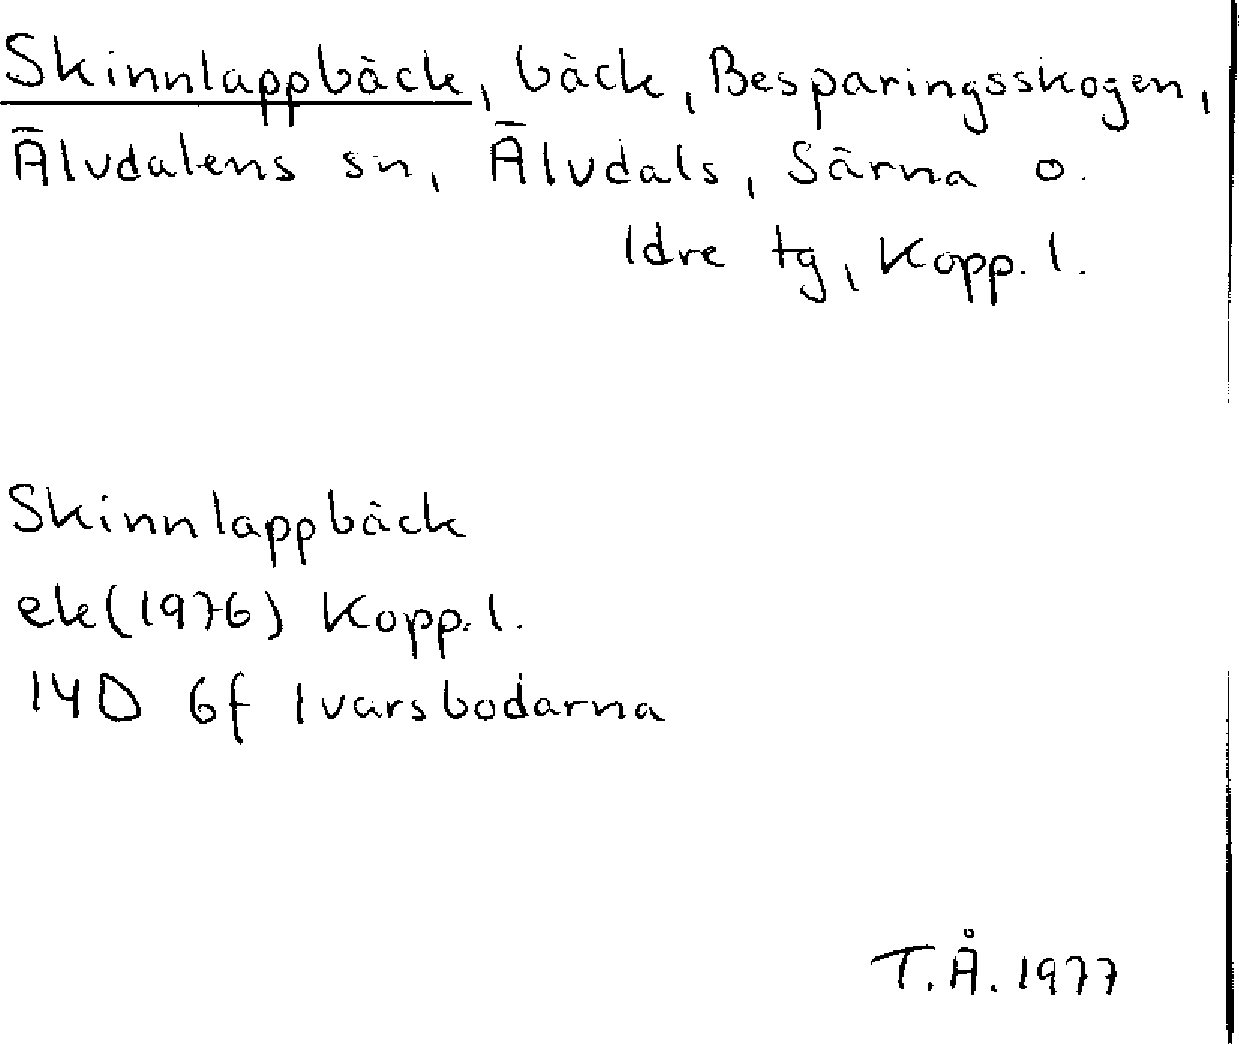 Skinnlappbäck, bäck, Besparingsskogen,
Älvdalens sn, Älvdals, Särna o.
Idre tg, Kopp. l.
Skinnlappbäck
ek(1976) Kopp. l.
14D 6f Ivarsbodarna
T.Å. 1977